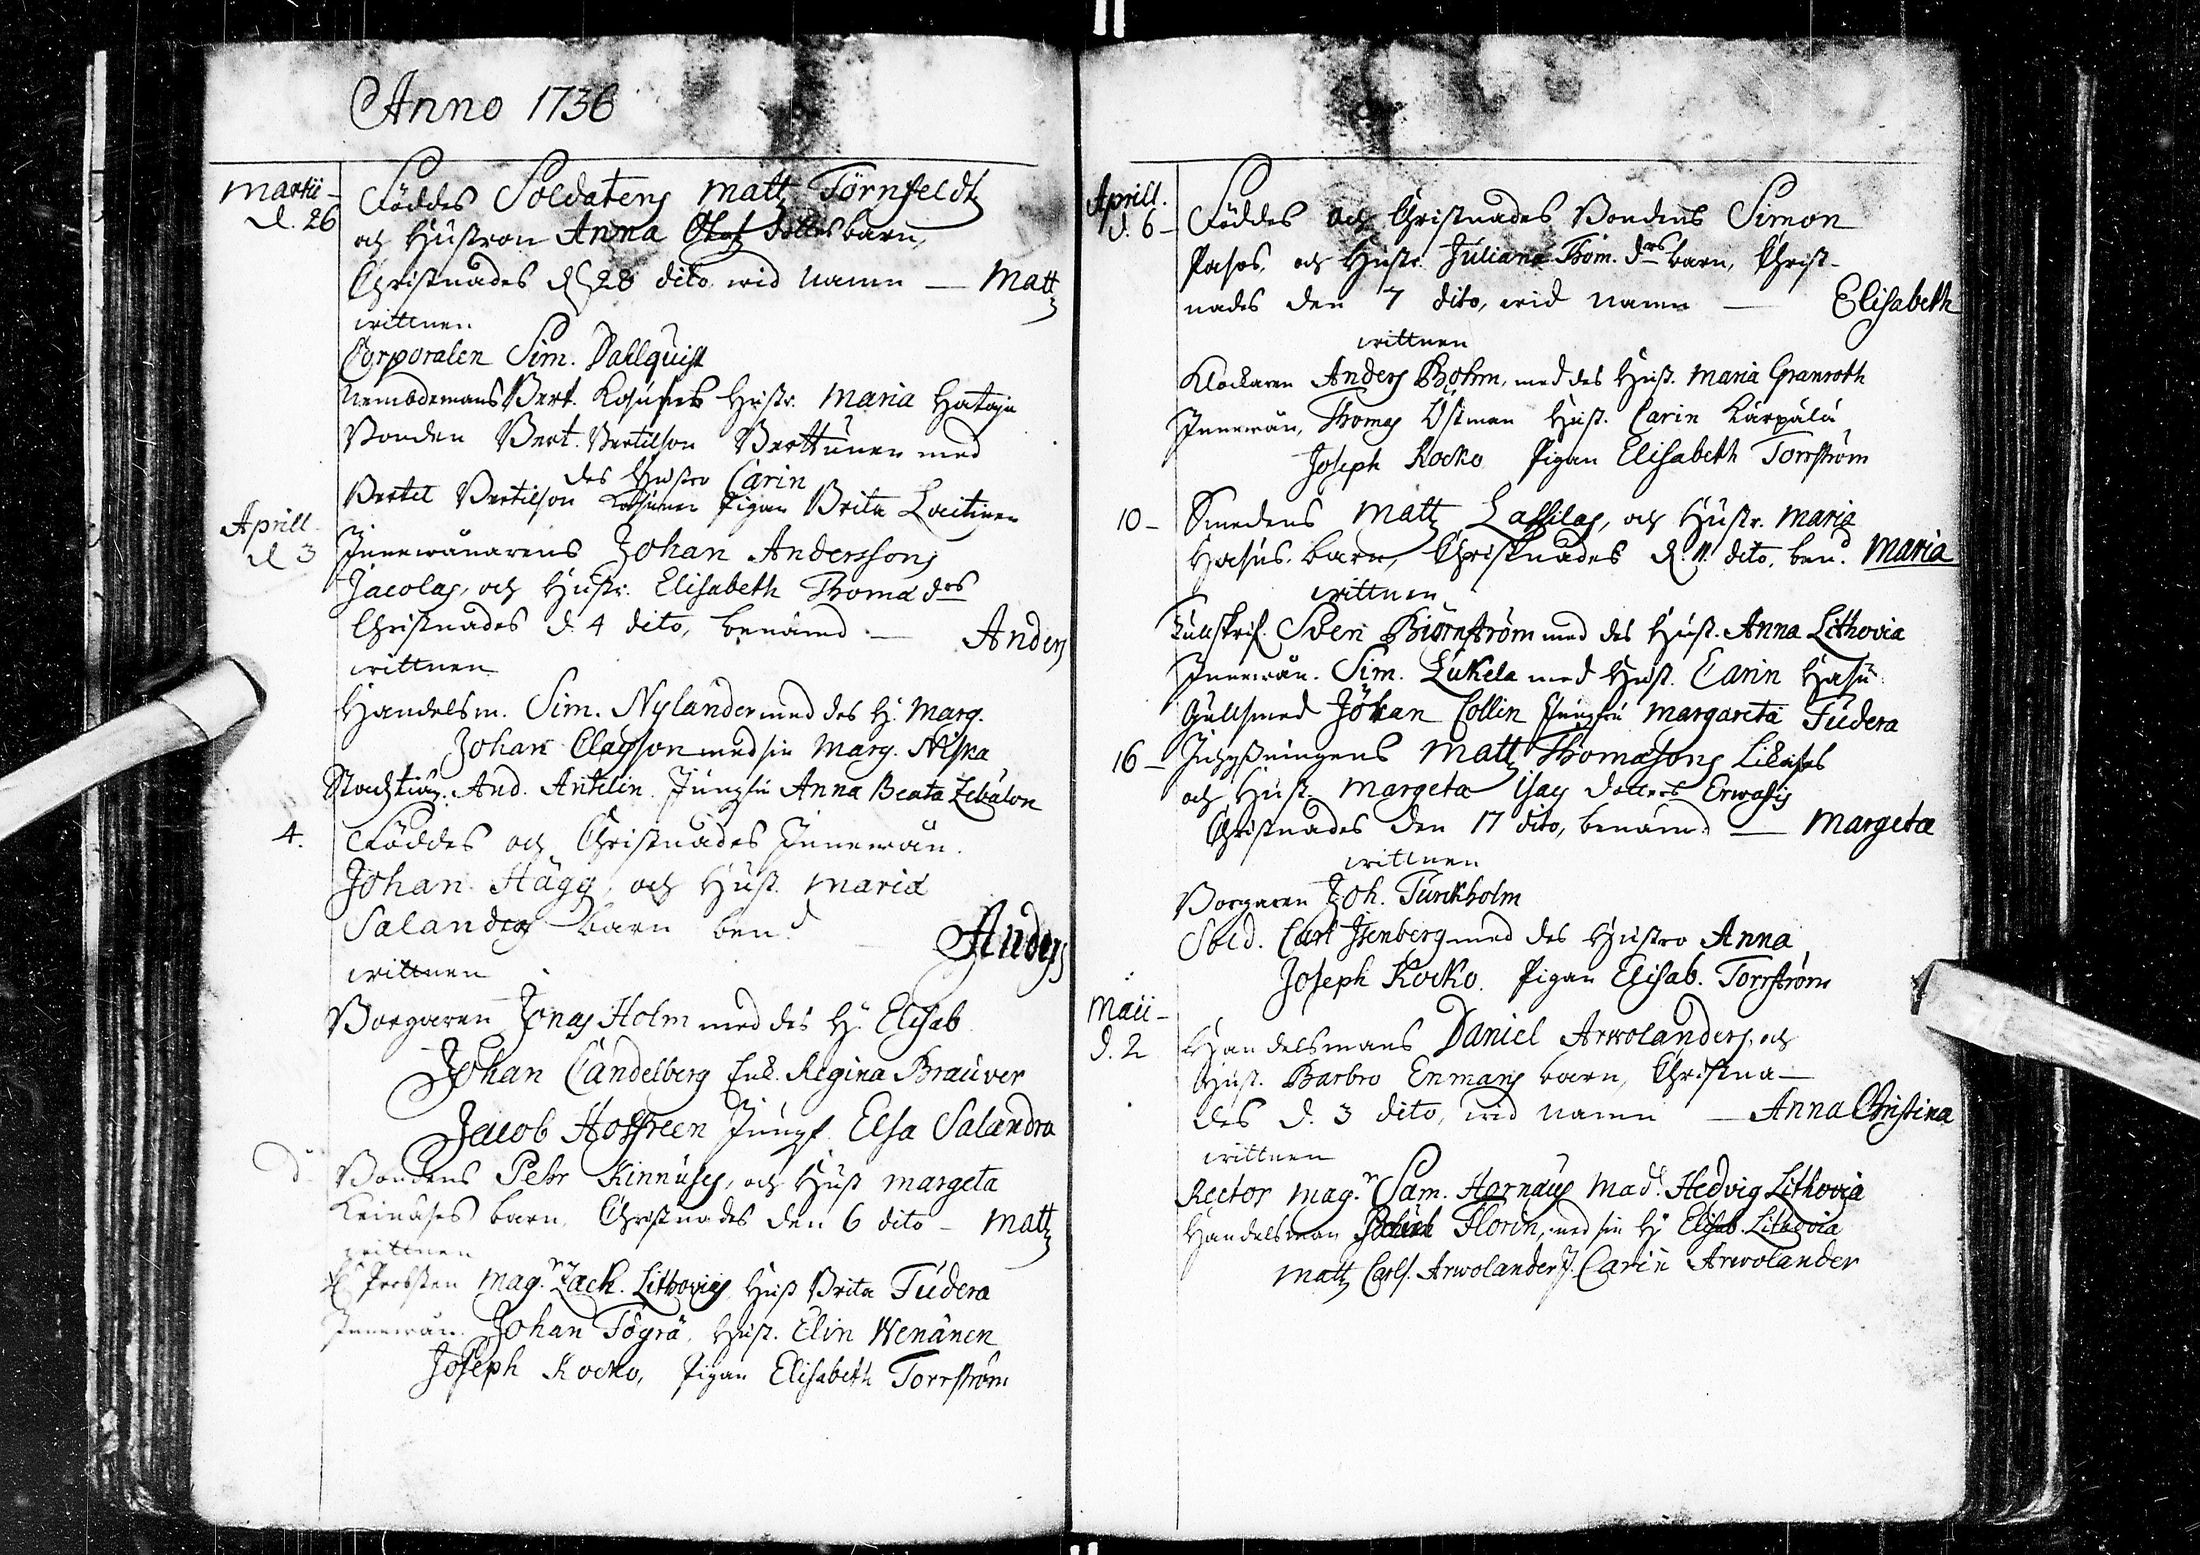 Anno 1736
Martii
d. 26
Föddes Soldatens Matts Törnfeldts
och Hustron Anna barn,
Christnades d. 28 dito wid namn — Matts
wittnen
Corporalen Sim. Dahlquist
Nembdemans Bert. Hustr. Maria Hataja
Bonden Bert. Bertilson Berttunen med
des Hustro Carin
Bertel Bertilson Pigan Brita Laitinen
Aprill
d 3
Innewånarens Johan Anderssons
Jacolas, och Hustr. Elisabeth Thomæ drs
Christnades d. 4 dito, benämd — Anders
wittnen
Handelsm. Sim. Nylander med des H. Marg.
Johan Classon med sin Marg. Niska
And. Antelin. Jungfu Anna Beata Zebulon
4.
Föddes och Christnades Innewån.
Johan Hägg, och Hust. Maria
Salanders barn ben.d Anders
wittnen
Borgaren Jonas Holm med des H. Elisab.
Johan Candelberg Enk. Regina Brauver
Jacob Hoffreen Jungf. Elsa Salandra
d.
Bondens Petr Kinnuses, och Hust Margeta
Keinäses barn, Christnades den 6 dito — Matts
wittnen
H. Probsten Mag.r Zach. Lithovius Hust Brita Tudera
Innewån. Johan Tögrä, Hust. Elin Wenänen
Joseph Kocko, Pigan Elisabeth Torrström
Aprill.
d. 6 —
Föddes och Christnades Bondens Simon
Pasos, och Hustr. Juliana Thom. drs barn, Christ-
nades den 7 dito, wid namn — Elisabeth
wittnen
Klockaren Anders Bohm, med des Hust. Maria Granroth
Innewån, Thomas Östman Hust. Carin Kärpälä,
Joseph Kocko Pigan Elisabeth Torrström
10 —
Smedens Matts Lassilas, och Hustr. Maria
Hasus, barn, Christnades d. 11 dito, ben.d Maria
wittnen
Tullskrif. Sven Biörnström med des Hust. Anna Lithovia
Innewån. Sim. Lukela med Hust. Carin Hasu
Gullsmed Johan Collin Jungfru Margareta Tudera
16 —
Matts Thomæsons
och Hust. Margeta Isacs dotters Erwasts
Christnades den 17 dito, benämd — Margeta
wittnen
Borgaren Joh. Turckholm
Sold. Carl Isenberg med des Hustro Anna
Joseph Kocko. Pigan Elisab. Torrström
Maii —
d. 2
Handelsmans Daniel Arwolanders, och
Hust. Barbro Enmans barn, Christna-
des d. 3 dito, wid namn — Anna Christina
wittnen
Rector Mag.r Sam. Hornæus Mad. Hedvig Lithovia
Handelsman Florin, med sin H. Elisab. Lithovia
Matts Carls. Arwolander J. Carin Arwolander